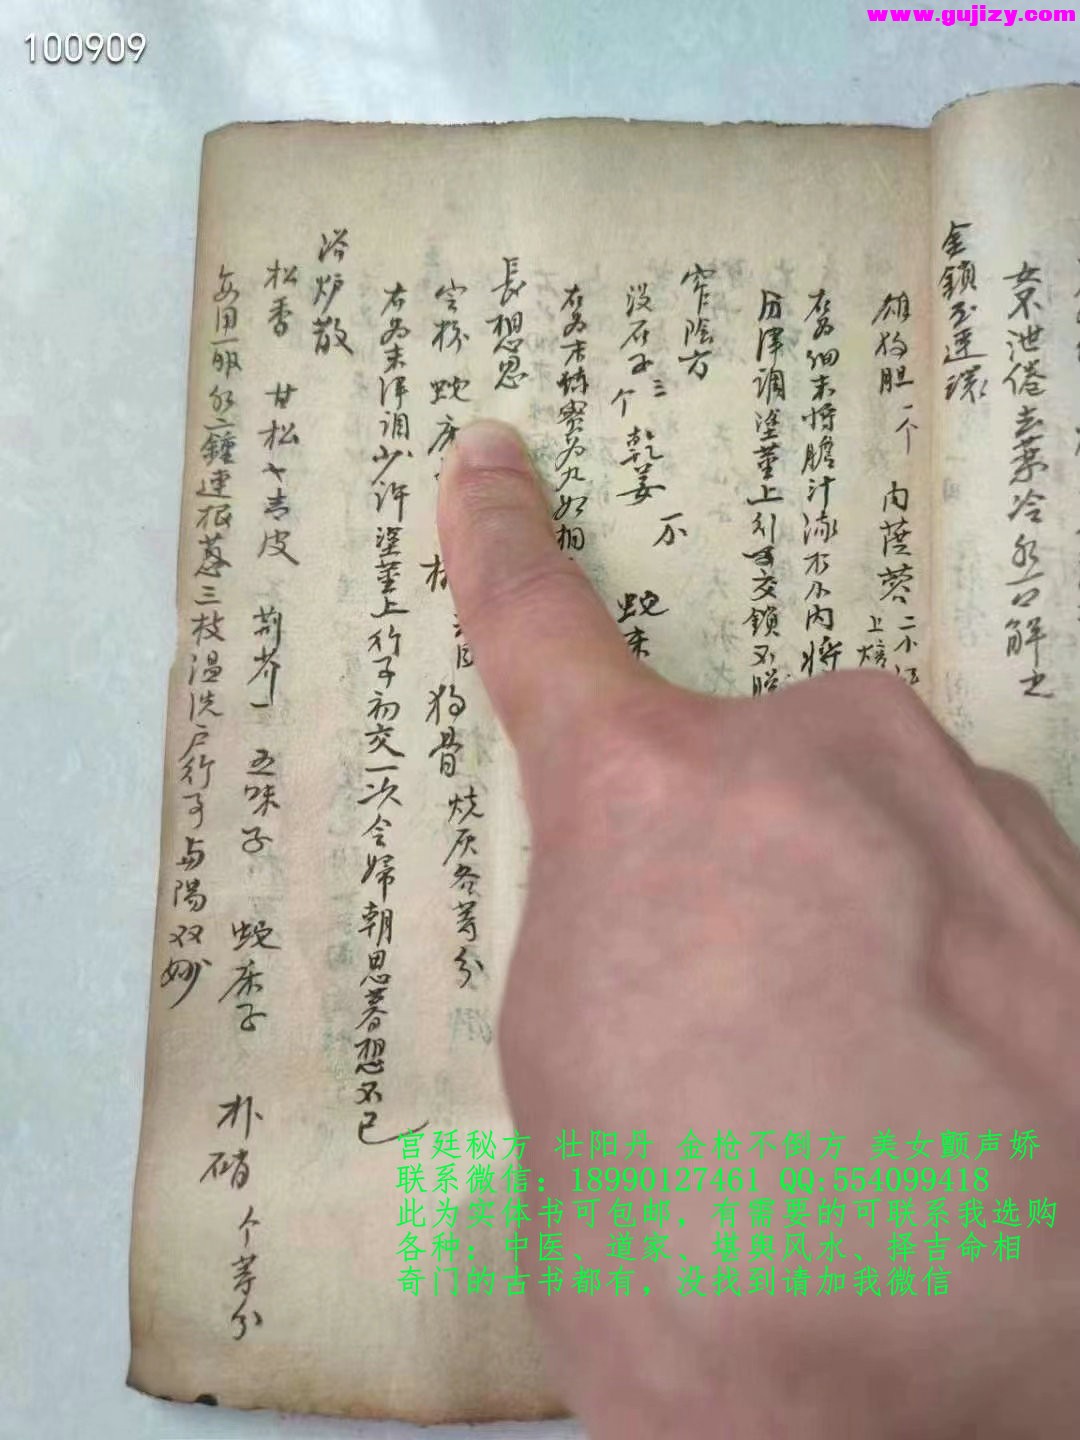 www.gujizy.com
100909
女不泄倦去藥冷水一口解之
金鎖玉連環
雄狗胆一个 肉蓯蓉二
右为細末將膽汁
津調塗莖上行事交鎖不脫
窄陰方
没石子 三个 乾姜 蛇床
右为末煉蜜为丸如梧
長想思
蛇床 狗骨 烧灰各等分
右为末津調少许塗莖上行事初交一次令婦朝思暮想不已
浴炉散
松香 甘松 青皮 荆芥 五味子 蛇床子 朴硝 个等分
每用一兩水二鐘連根葱三枝温洗户行事与陽双妙
宫廷秘方 壮阳丹 金枪不倒方 美女颤声娇
联系微信：18990127461 QQ:554099418
此为实体书可包邮，有需要的可联系我选购
各种：中医、道家、堪舆风水、择吉命相
奇门的古书都有，没找到请加我微信